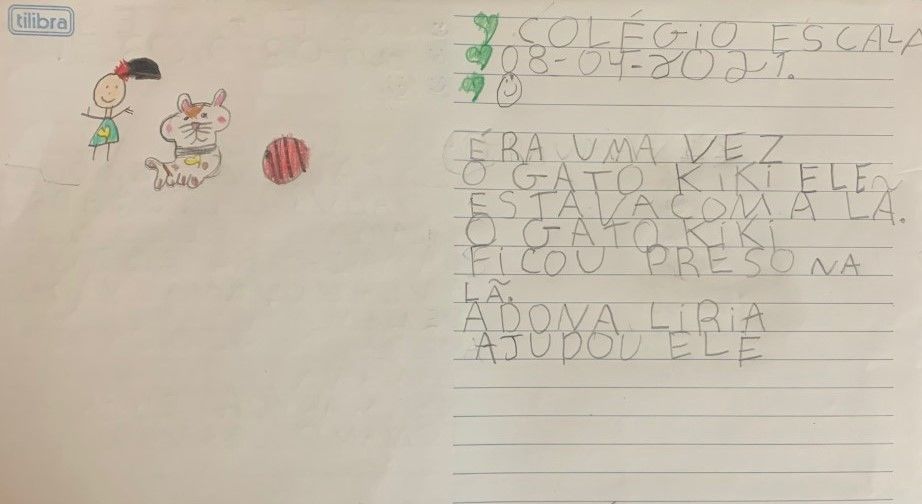 tilibra
COLÉGIO ESCALA
08-04-2021.
ÉRA UMA VEZ
O GATO KiKi ELE
ESTAVA COM A LÃ.
O GATO KiKi
FICOU PRESO NA
LÃ.
A DONA LiRiA
AJUDOU ELE